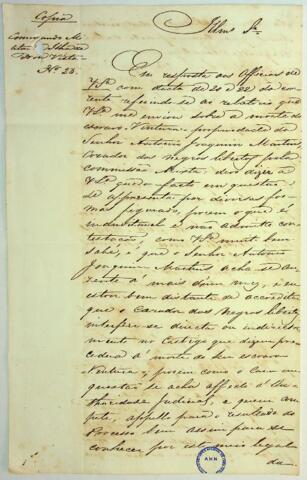 Copia
Commando Mi
N.º 23.
Illmo Sr.
Em resposta aos Officios de
VSª com data de 20 e 22 do cor
rente referindo-se ao relatorio que
VSª me enviou sobre a morte do
escravo Ventura propriedade do
Senhor Antonio Joaquim Martins,
Curador dos Negros libertos pela
Commissão Mixta, devo dizer a
VSª que o facto em questão
se apresenta por diversas for
mas, porem o que é
indubitavel e não admite con
testação, como VSª muito bem
sabe, é que o Senhor Antonio
Joaquim Martins acha-se au
zente á mais d'um mez, e eu
estou bem distante de acreditar
que o Curador dos Negros libertos
interferisse directa ou indirecta
mente no Castigo que dizem pro
cedeu á morte do seu escravo
Ventura; porem como o Caso em
questão se acha affecto á Au
thoridade Judicial, a quem com
pete, appello para o resultado do
Processo, bem assim para se
conhecer por este meio legal
da
AHN